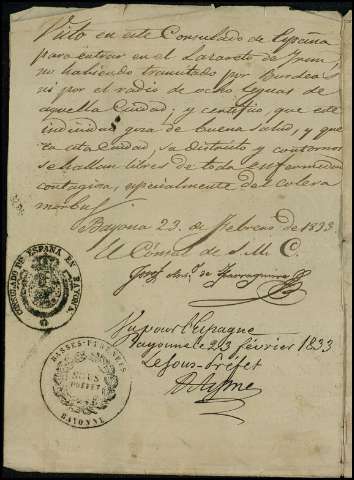 Visto en este Consulado de España
para entrar en el Lazareto de Irun,
no habiendo transitado por Burdeos
ni por el radio de ocho leguas de
aquella Ciudad; y certifico que este
individuo goza de buena salud, y que
esta Ciudad, su distrito y contornos
se hallan libres de toda enfermedad
contagiosa, especialmente del colera
morbus
Bayona 23 de Febrero de 1833
El Cónsul de S. M. C.
CONSULADO DE ESPAÑA EN BAYONA
Vu pour l'Espagne
Bayonne le 23 février 1833
Le Sous-Préfet
BASSES-PYRENÉES
SOUS
PRÉFET
BAYONNE